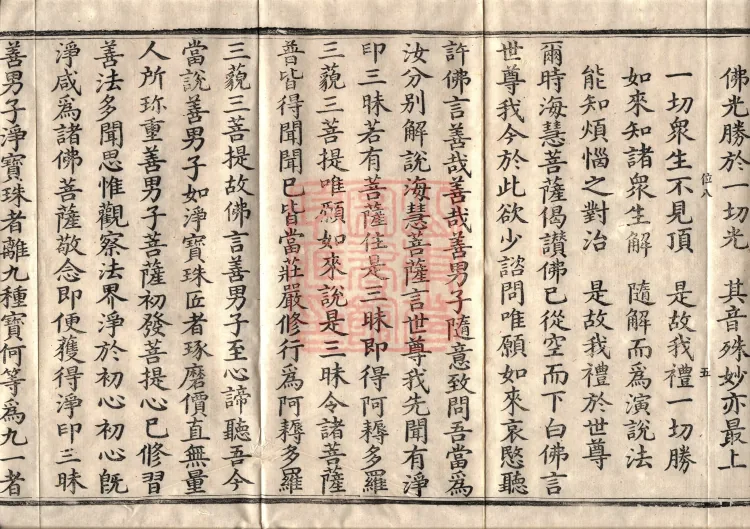 佛光勝於一切光　其音殊妙亦最上
位八　五
一切衆生不見頂　是故我禮一切勝
如來知諸衆生解　隨解而爲演說法
能知煩惱之對治　是故我禮於世尊
爾時海慧菩薩偈讃佛已從空而下白佛言
世尊我今於此欲少諮問唯願如來哀愍聽
許佛言善哉善哉善男子隨意致問吾當爲
汝分别解說海慧菩薩言世尊我先聞有淨
印三昧若有菩薩住是三昧即得阿耨多羅
三藐三菩提唯願如來說是三昧令諸菩薩
普皆得聞聞已皆當莊嚴修行爲阿耨多羅
三藐三菩提故佛言善男子至心諦聽吾今
當說善男子如淨寶珠匠者琢磨價直無量
人所珎重善男子菩薩初發菩提心已修習
善法多聞思惟觀察法界淨於初心初心旣
淨咸爲諸佛菩薩敬念即便獲得淨印三昧
善男子淨寶珠者離九種寶何等爲九一者